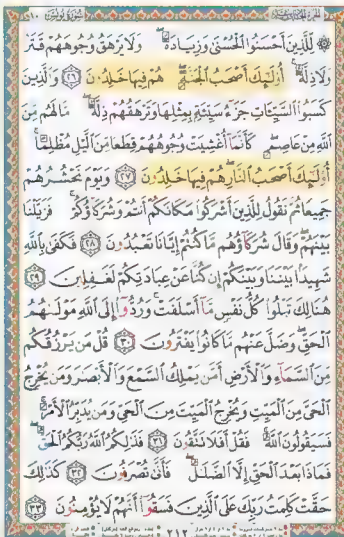 ۞ لِّلَّذِينَ أَحْسَنُوا الْحُسْنَىٰ وَزِيَادَةٌ ۖ وَلَا يَرْهَقُ وُجُوهَهُمْ قَتَرٌ
وَلَا ذِلَّةٌ ۚ أُولَٰئِكَ أَصْحَابُ الْجَنَّةِ ۖ هُمْ فِيهَا خَالِدُونَ ﴿٢٦﴾ وَالَّذِينَ
كَسَبُوا السَّيِّئَاتِ جَزَاءُ سَيِّئَةٍ بِمِثْلِهَا وَتَرْهَقُهُمْ ذِلَّةٌ ۖ مَّا لَهُم مِّنَ
اللَّهِ مِنْ عَاصِمٍ ۖ كَأَنَّمَا أُغْشِيَتْ وُجُوهُهُمْ قِطَعًا مِّنَ اللَّيْلِ مُظْلِمًا ۚ
أُولَٰئِكَ أَصْحَابُ النَّارِ ۖ هُمْ فِيهَا خَالِدُونَ ﴿٢٧﴾ وَيَوْمَ نَحْشُرُهُمْ
جَمِيعًا ثُمَّ نَقُولُ لِلَّذِينَ أَشْرَكُوا مَكَانَكُمْ أَنتُمْ وَشُرَكَاؤُكُمْ ۚ فَزَيَّلْنَا
بَيْنَهُمْ ۖ وَقَالَ شُرَكَاؤُهُم مَّا كُنتُمْ إِيَّانَا تَعْبُدُونَ ﴿٢٨﴾ فَكَفَىٰ بِاللَّهِ
شَهِيدًا بَيْنَنَا وَبَيْنَكُمْ إِن كُنَّا عَنْ عِبَادَتِكُمْ لَغَافِلِينَ ﴿٢٩﴾
هُنَالِكَ تَبْلُو كُلُّ نَفْسٍ مَّا أَسْلَفَتْ ۚ وَرُدُّوا إِلَى اللَّهِ مَوْلَاهُمُ
الْحَقِّ ۖ وَضَلَّ عَنْهُم مَّا كَانُوا يَفْتَرُونَ ﴿٣٠﴾ قُلْ مَن يَرْزُقُكُم
مِّنَ السَّمَاءِ وَالْأَرْضِ أَمَّن يَمْلِكُ السَّمْعَ وَالْأَبْصَارَ وَمَن يُخْرِجُ
الْحَيَّ مِنَ الْمَيِّتِ وَيُخْرِجُ الْمَيِّتَ مِنَ الْحَيِّ وَمَن يُدَبِّرُ الْأَمْرَ ۚ
فَسَيَقُولُونَ اللَّهُ ۚ فَقُلْ أَفَلَا تَتَّقُونَ ﴿٣١﴾ فَذَٰلِكُمُ اللَّهُ رَبُّكُمُ الْحَقُّ ۖ
فَمَاذَا بَعْدَ الْحَقِّ إِلَّا الضَّلَالُ ۖ فَأَنَّىٰ تُصْرَفُونَ ﴿٣٢﴾ كَذَٰلِكَ
حَقَّتْ كَلِمَتُ رَبِّكَ عَلَى الَّذِينَ فَسَقُوا أَنَّهُمْ لَا يُؤْمِنُونَ ﴿٣٣﴾
٢١٢